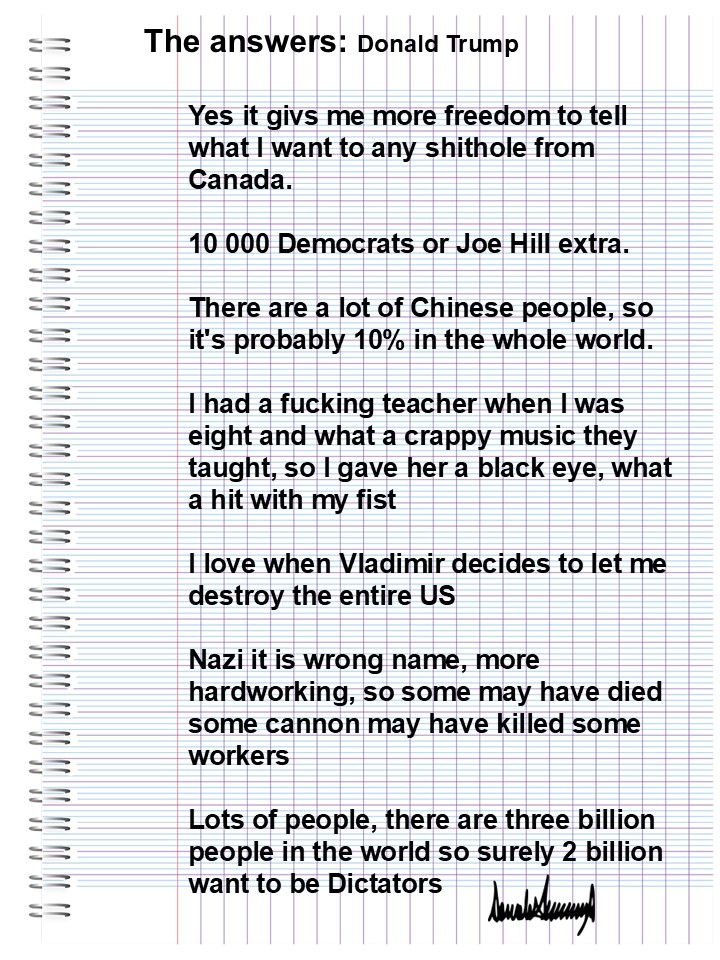 The answers: Donald Trump
Yes it givs me more freedom to tell
what I want to any shithole from
Canada.
10 000 Democrats or Joe Hill extra.
There are a lot of Chinese people, so
it's probably 10% in the whole world.
I had a fucking teacher when I was
eight and what a crappy music they
taught, so I gave her a black eye, what
a hit with my fist
I love when Vladimir decides to let me
destroy the entire US
Nazi it is wrong name, more
hardworking, so some may have died
some cannon may have killed some
workers
Lots of people, there are three billion
people in the world so surely 2 billion
want to be Dictators